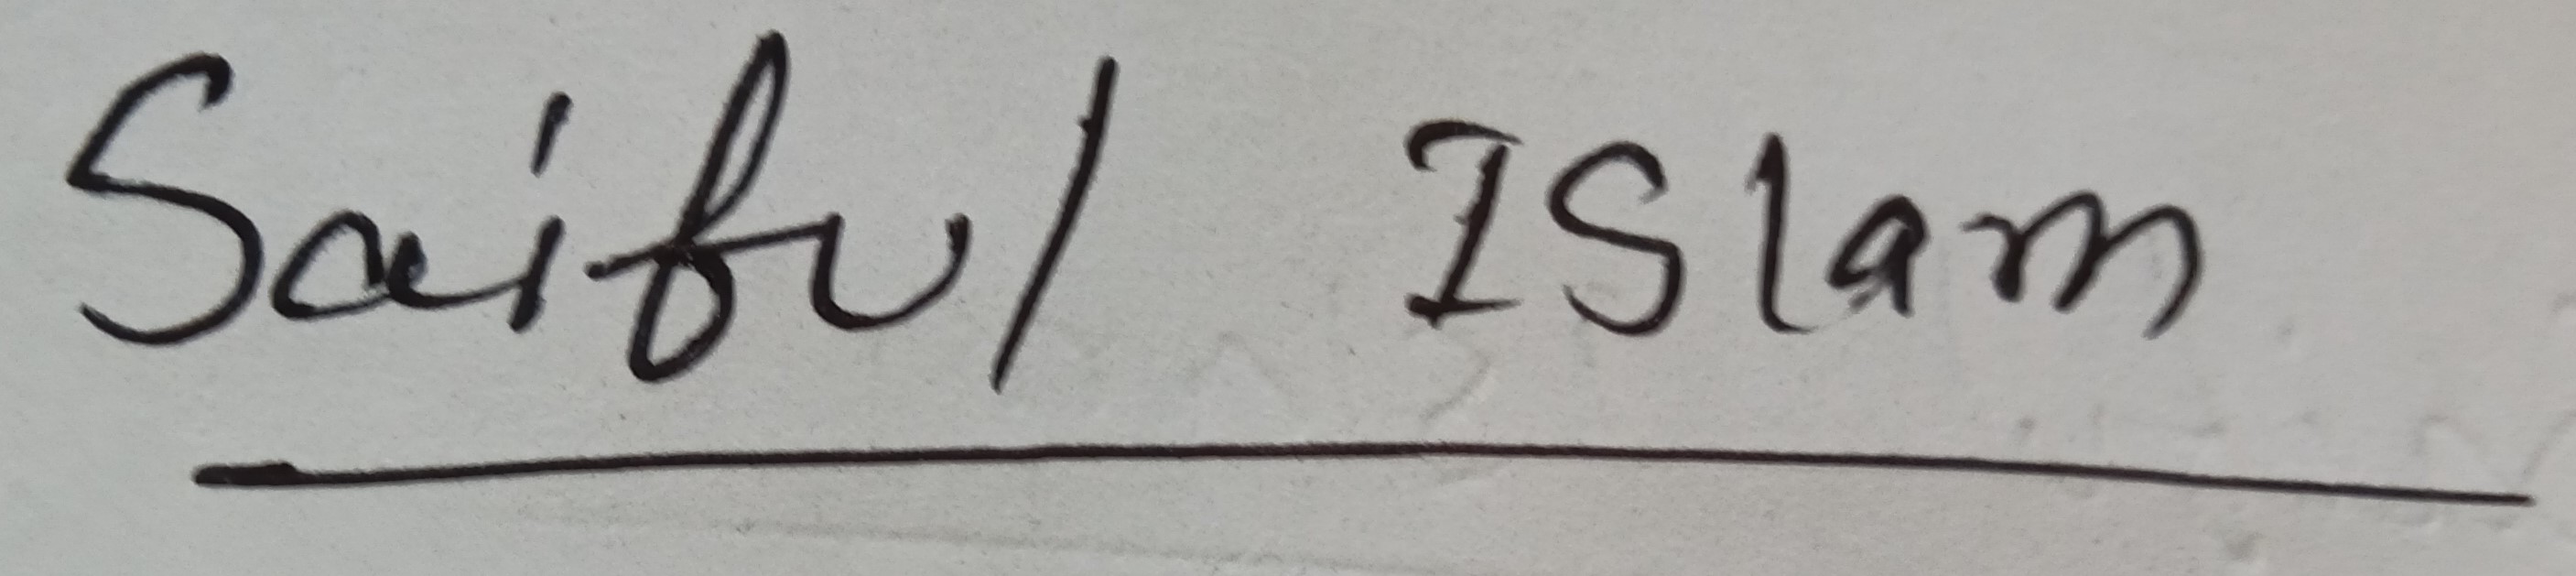 Saiful ISlam